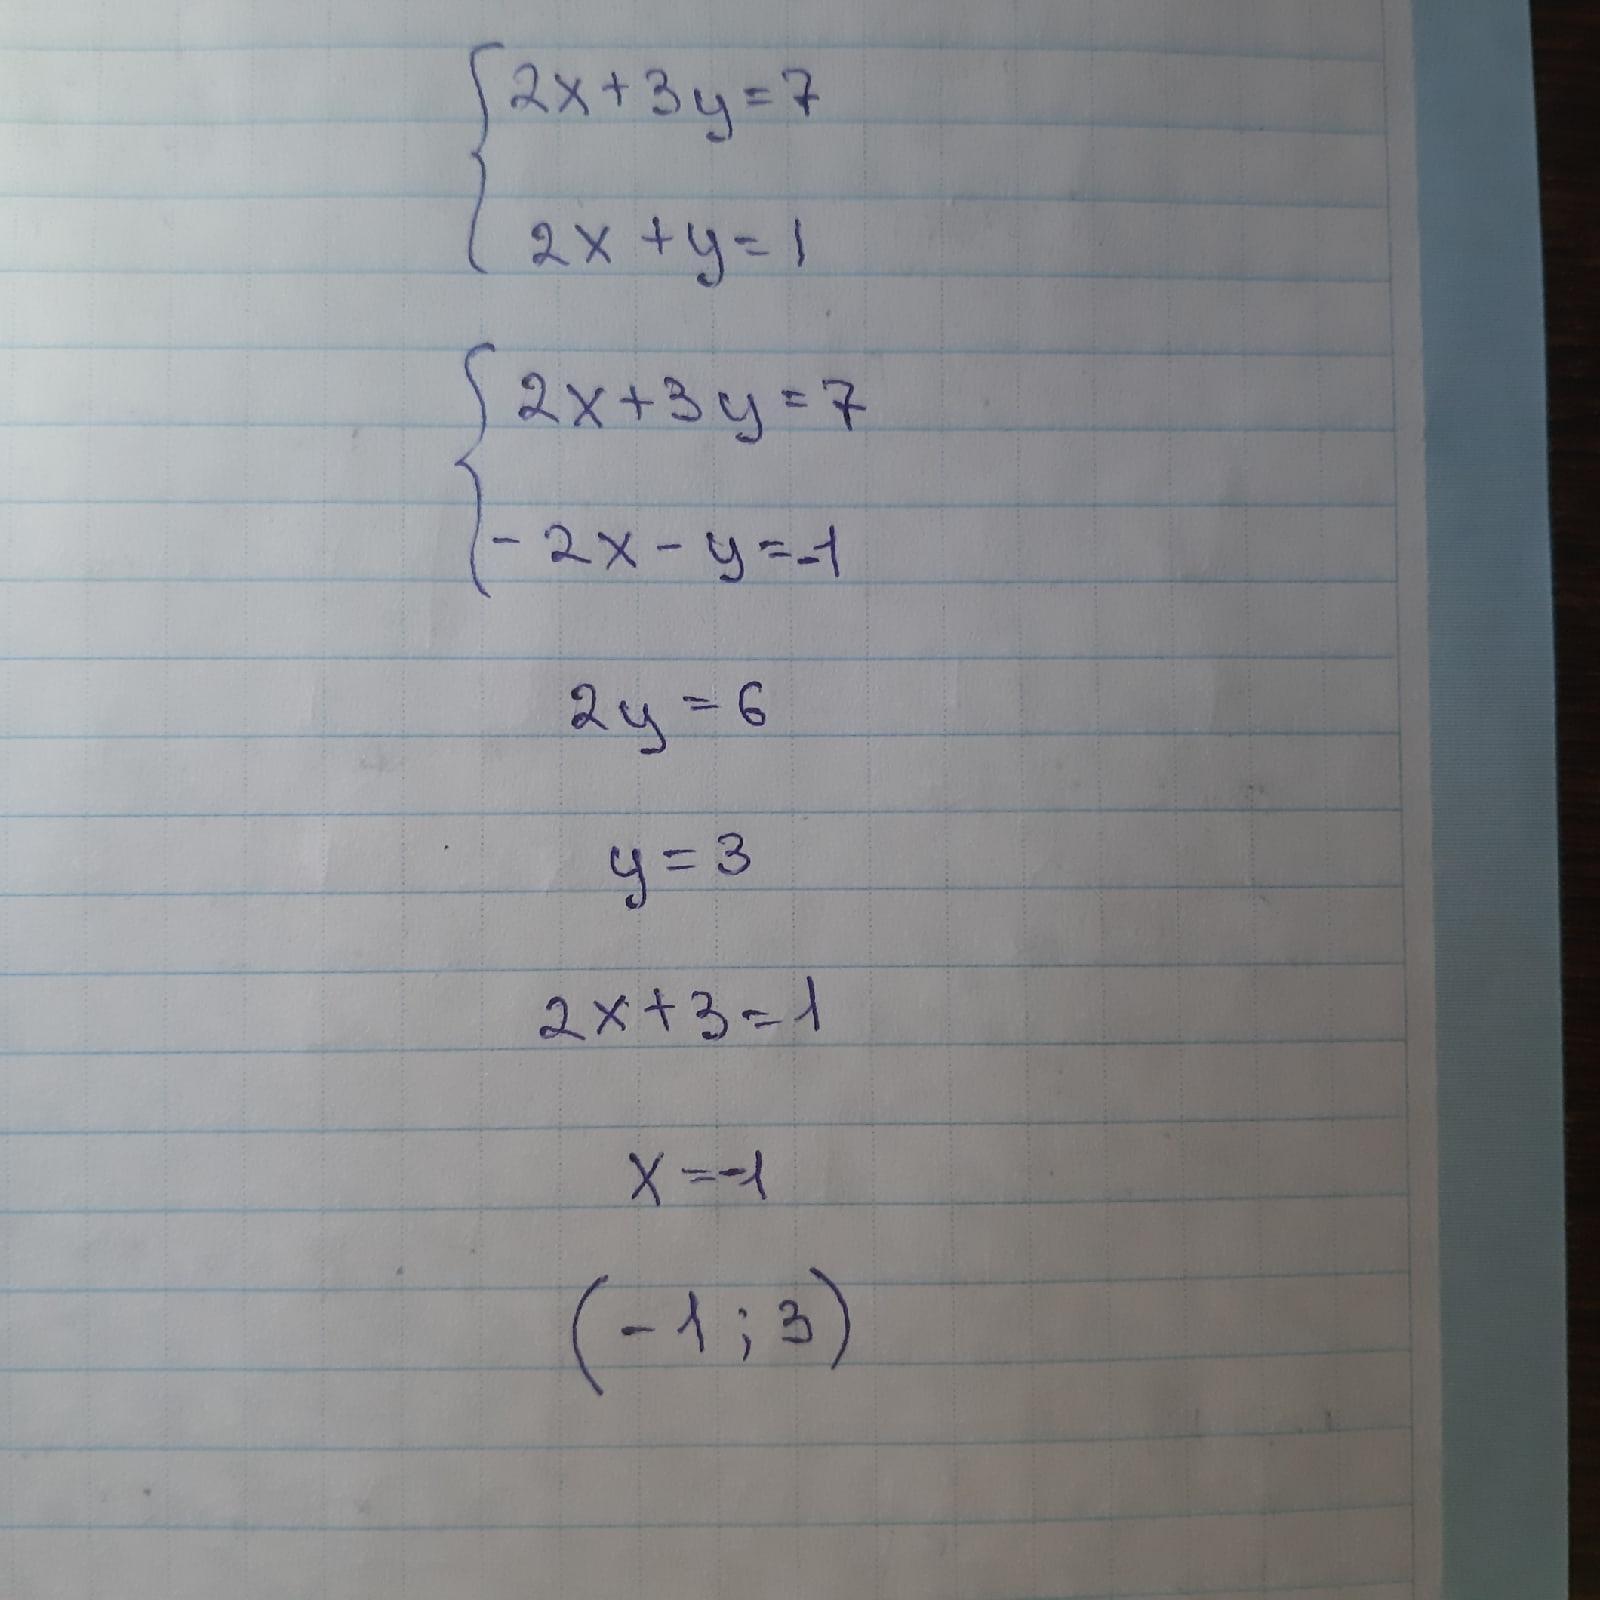 2x+3y=7
2x+y=1
2x+3y=7
-2x-y=-1
2y=6
y=3
2x+3=1
x=-1
(-1;3)